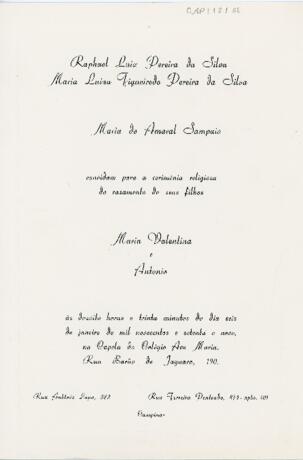 Raphael Luiz Pereira da Silva
Maria Luiza Figueiredo Pereira da Silva
Maria do Amaral Sampaio
convidam para a cerimônia religiosa
do casamento de seus filhos
Maria Valentina
e
Antonio
às dezoito horas e trinta minutos do dia seis
de janeiro de mil novecentos e setenta e nove,
na Capela do Colégio Ave Maria.
Rua Barão de Jaguara, 190.
Rua Antônio Lapa,
Rua Ferreira Penteado, apto. 101
Campinas